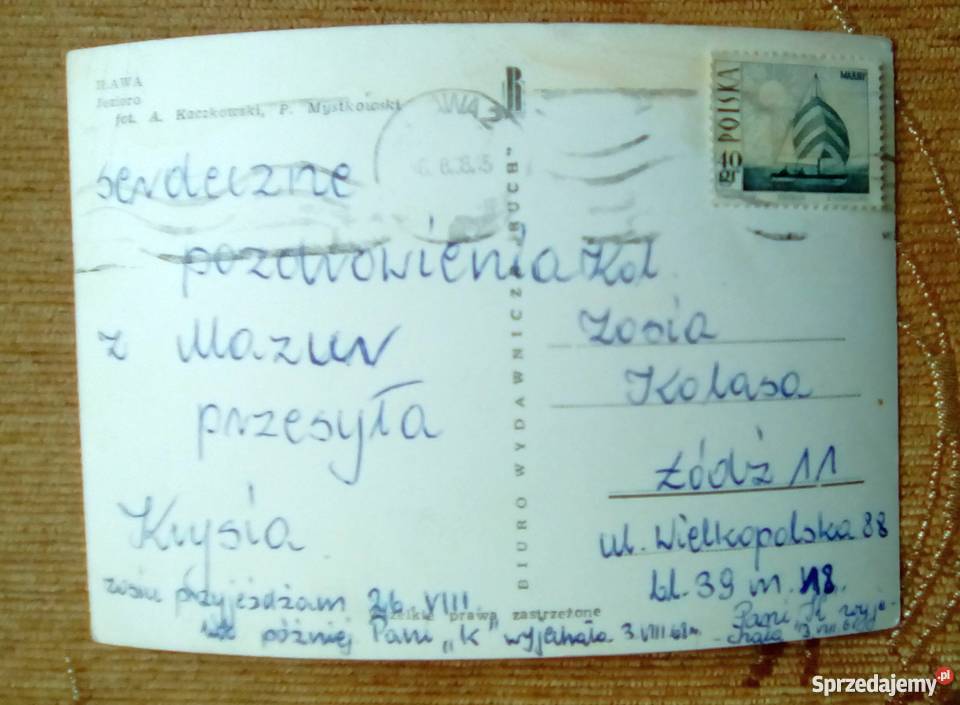 IŁAWA
Jezioro
fot. A. Kaczkowski, P. Mystkowski
serdeczne
pozdrowienia
z Mazur
przesyła
Krysia
Zosiu przyjeżdżam 26 VIII
później Pani „K" wyjechała 3 VIII 68 r.
BIURO WYDAWNICZE „RUCH"
Wszelkie prawa zastrzeżone
POLSKA
MAZURY
40 gr
Kol.
Zosia
Kolasa
Łódź 11
ul. Wielkopolska 88
bl. 39 m. 18.
Pani „K" wyje-
chała 3 VIII
Sprzedajemy.pl